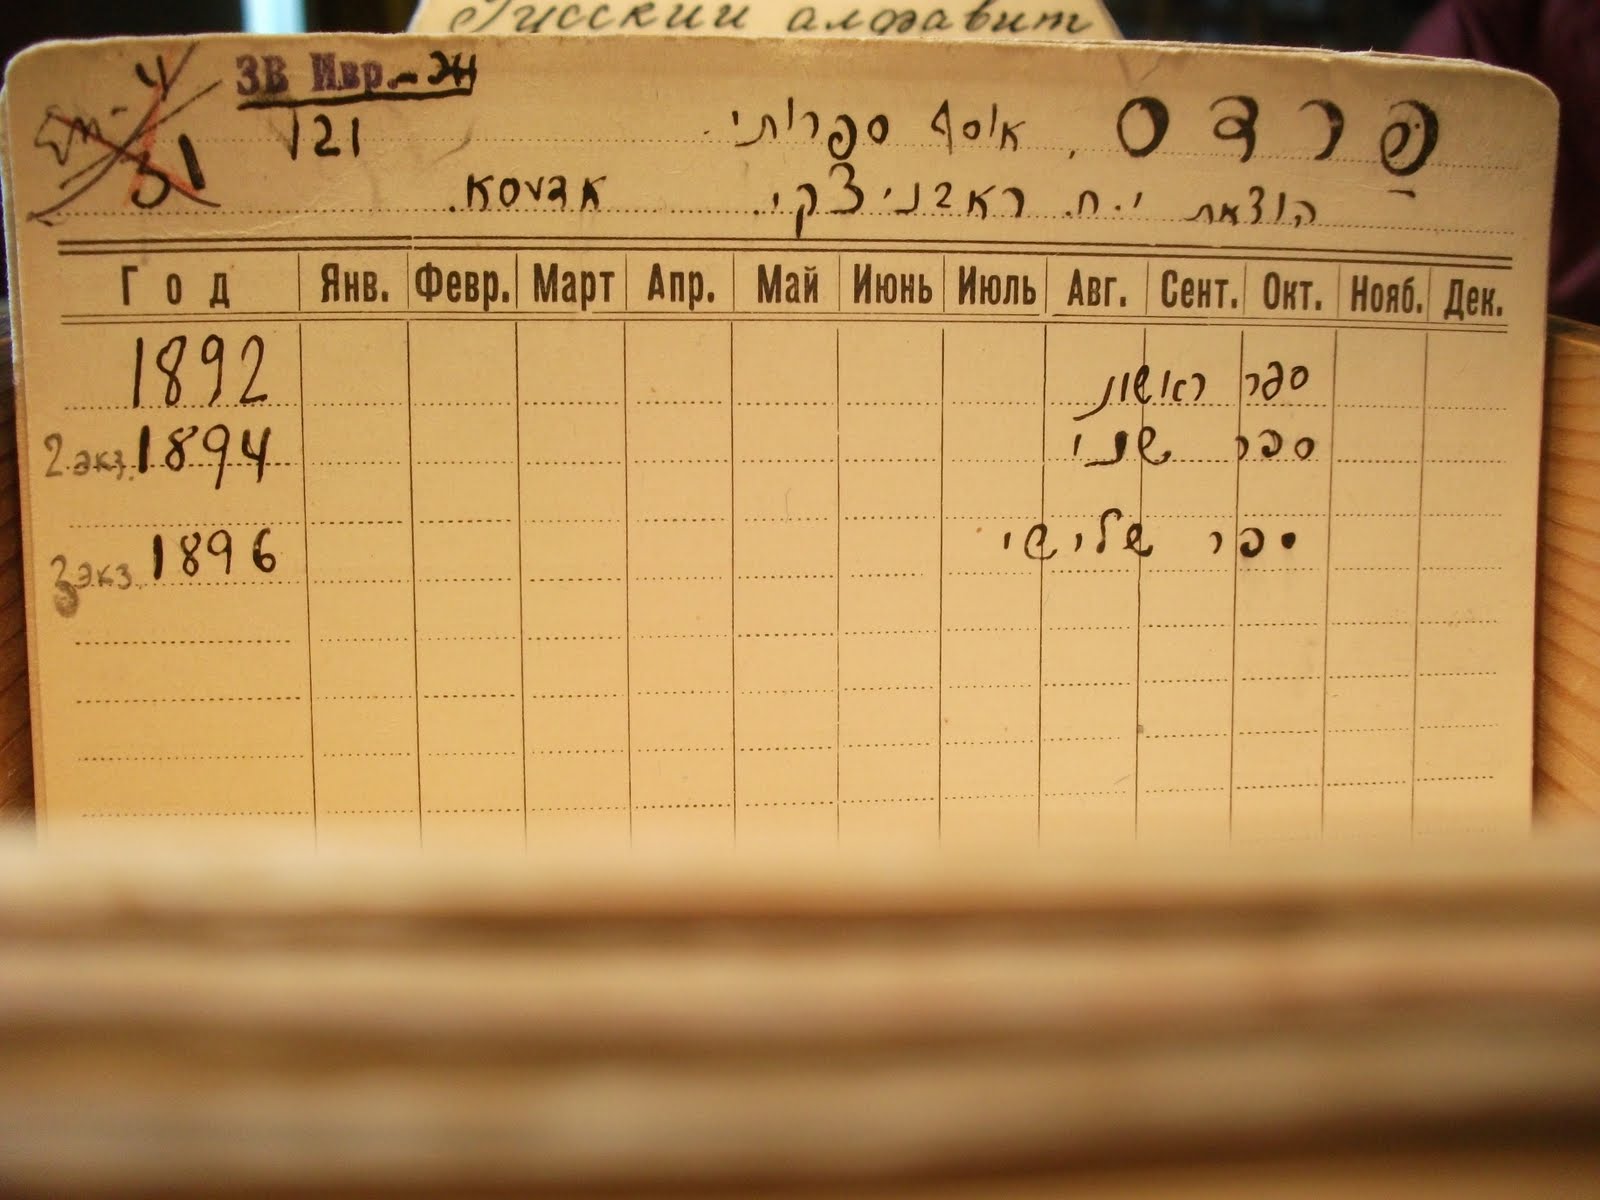 Русский алфавит
ЗВ Ивр.-ЭН
פרדס, אוסף ספרותי.
121
הוצאת י. ח. ראבניצקי. אדעסא.
Год Янв. Февр. Март Апр. Май Июнь Июль Авг. Сент. Окт. Нояб. Дек.
1892 ספר ראשון
2 экз. 1894 ספר שני
3 экз. 1896 ספר שלישי